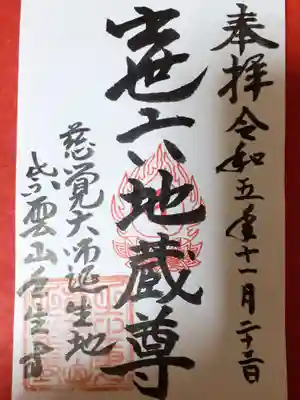 奉拝 令和五年十一月二十三日
出世六地蔵尊
慈覚大师誕生地
紫雲山壬生寺